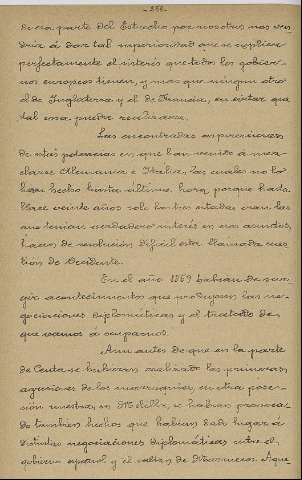 - 358 -
de esa parte del Estrecho por nosotros nos ven-
dria á dar tal superioridad que se explica
perfectamente el interés que todos los gobier-
nos europeos tienen, y mas que ningun otro
el de Inglaterra y el de Francia, en evitar que
tal cosa pueda realizarse.
Las encontradas aspiraciones
de estas potencias en que han venido á mez-
clarse Alemania é Italia, las cuales no lo
han hecho hasta última hora, porque hasta
hace veinte años solo los tres estados eran los
que tenian verdadero interés en ese asunto,
hacen de resolucion dificil esta llamada cues-
tion de Occidente.
En el año 1859 habian de sur-
gir acontecimientos que produjeron las ne-
gociaciones diplomáticas y el tratado de
que vamos á ocuparnos.
Aun antes de que en la parte
de Ceuta se hubieran realizado las primeras
agresiones de los marroquies, en otra pose-
sión nuestra, en Melilla, se habian provoca-
do tambien hechos que habian dado lugar á
distintas negociaciones diplomáticas entre el
gobierno español y el sultan de Marruecos. Aque-